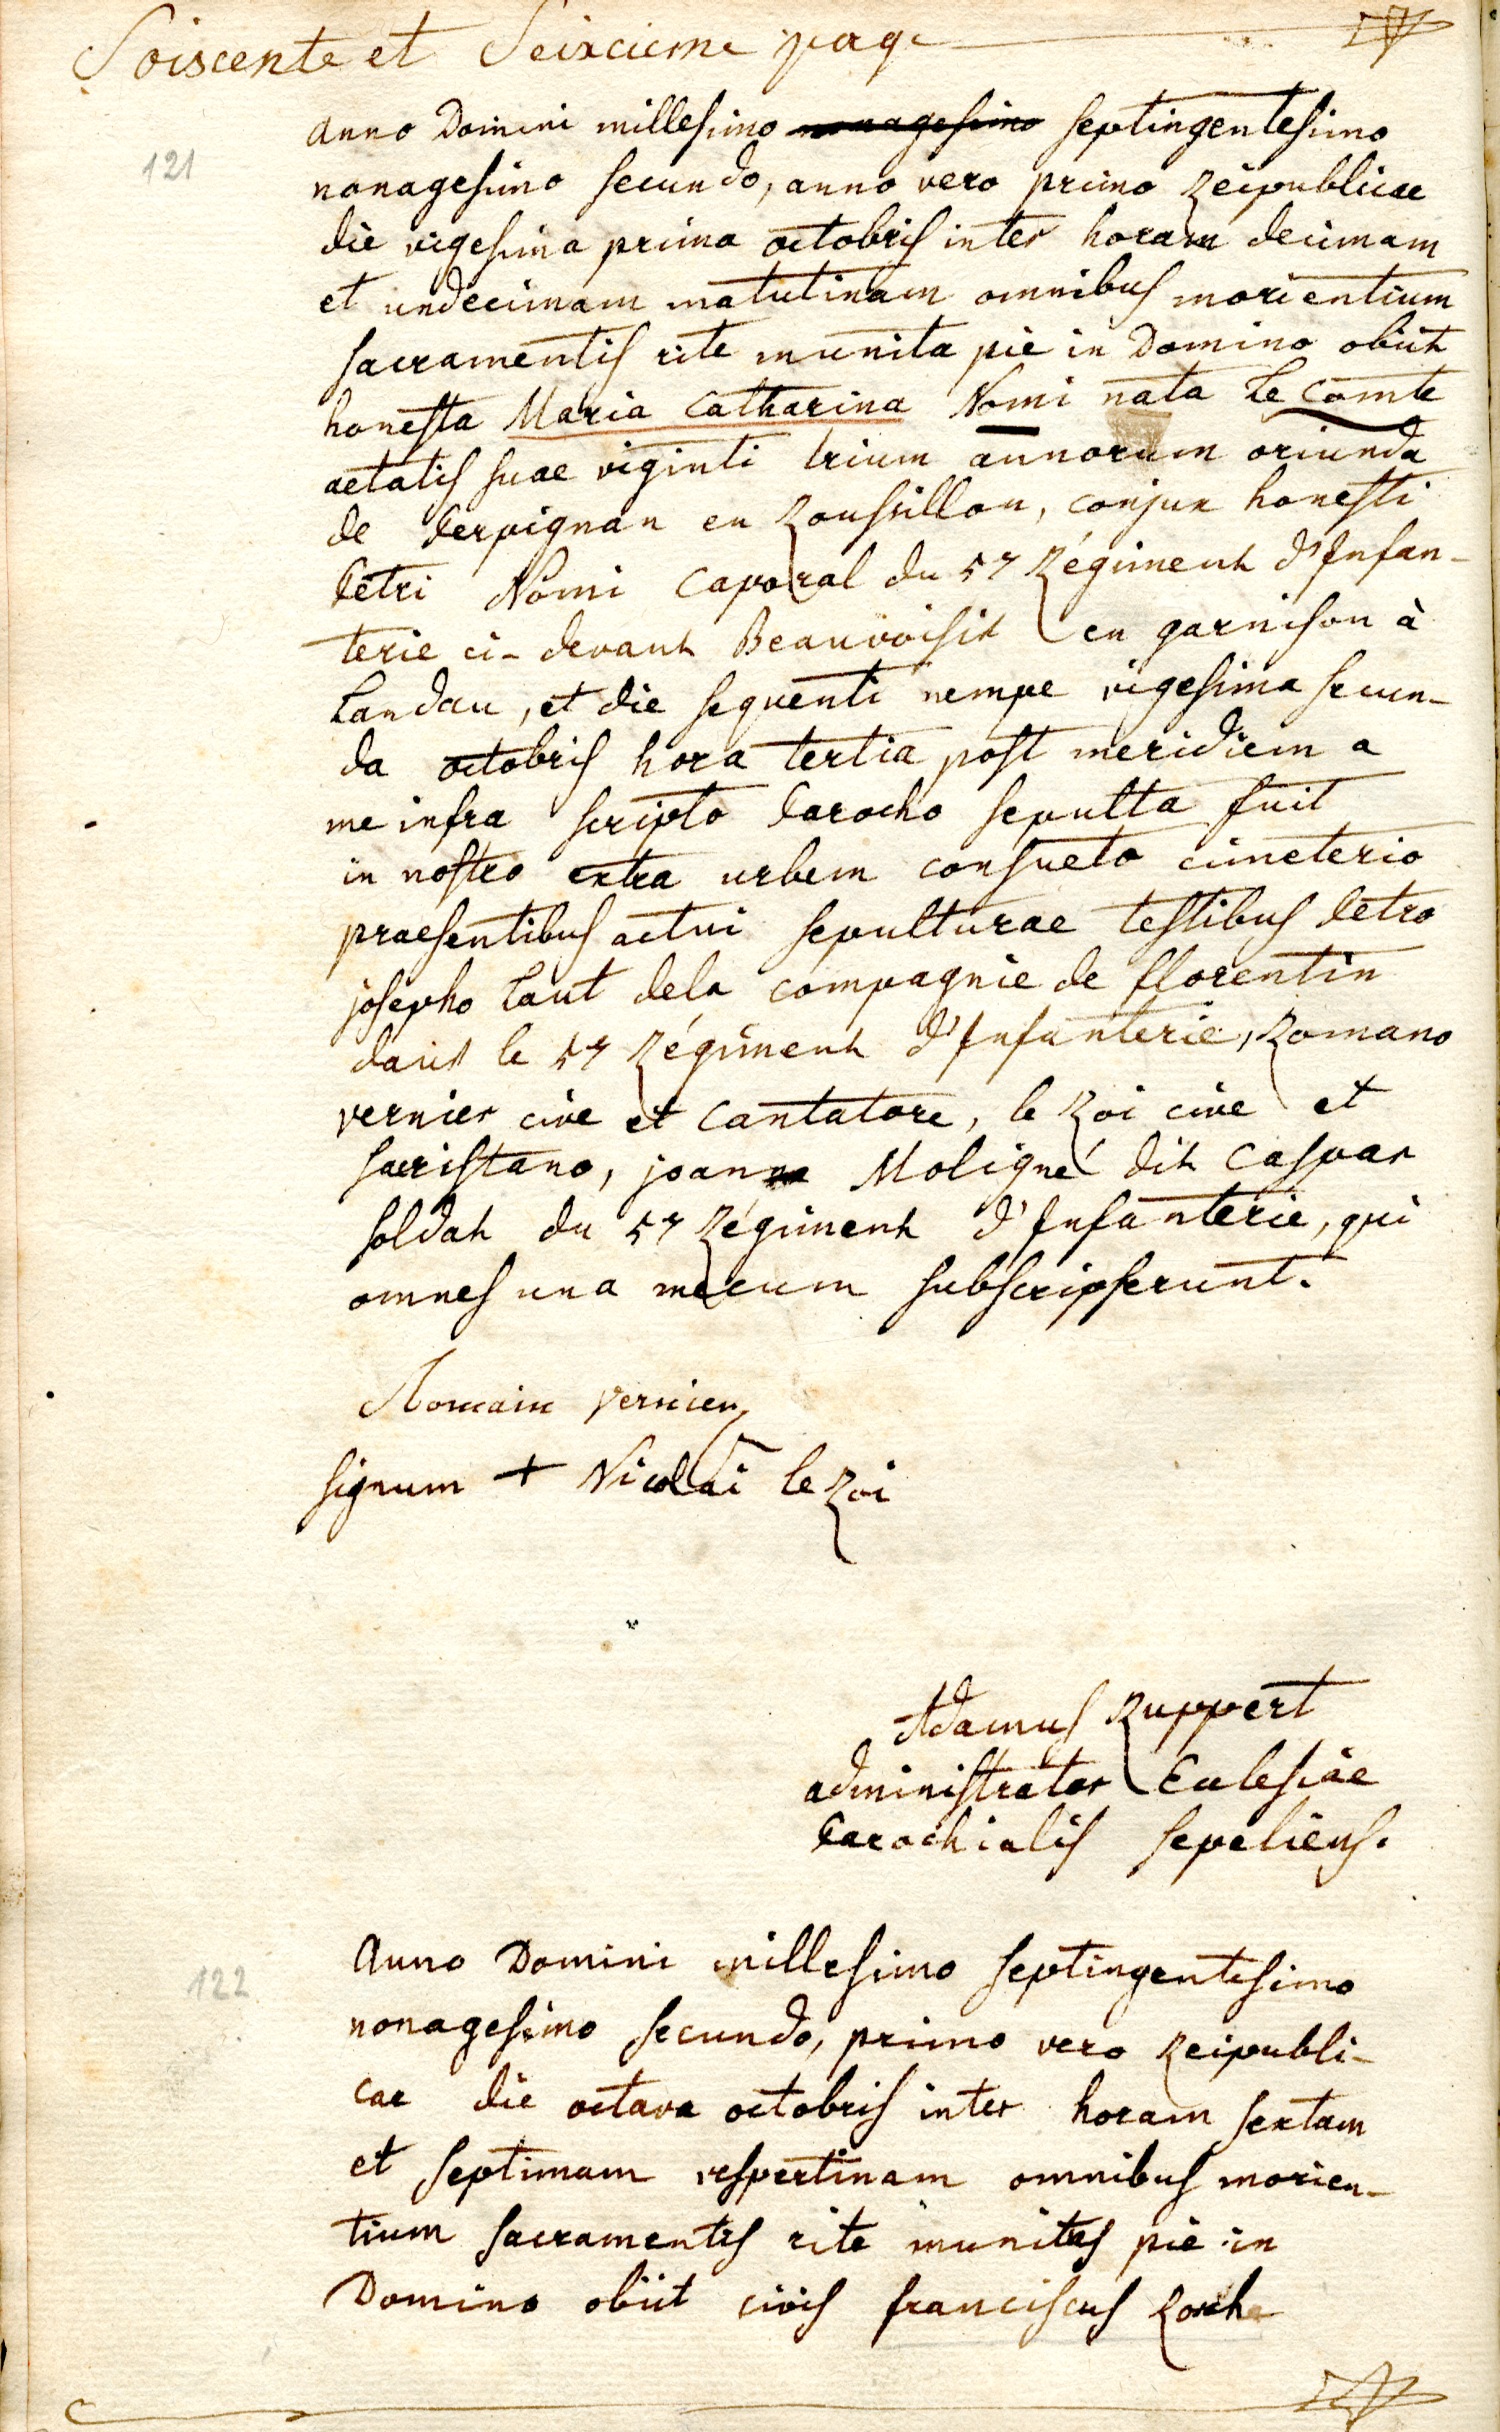 Soiscente et Seixcieme page
121
anno Domini millesimo nonagesimo septingentesimo
nonagesimo secundo, anno vero primo Reipublicae
die vigesima prima octobris inter horam decimam
et undecimam matutinam omnibus morientium
sacramentis rite munita pie in Domino obiit
honesta Maria Catharina Nomi nata Le Comte
aetatis suae viginti trium annorum oriunda
de Perpignan en Roussillon, conjux honesti
Petri Nomi Caporal du 57 Régiment d'Infan-
terie ci-devant Beauvoisis en garnison à
Landau, et die sequenti nempe vigesima secun-
da octobris hora tertia post meridiem a
me infra scripto Parocho sepulta fuit
in nostro extra urbem consueto cimeterio
praesentibus actui sepulturae testibus Petro
josepho Paut dela compagnie de florentin
dans le 57 Régiment d'Infanterie, Romano
vernier cive et Cantatore, le Roi cive et
sacristano, joanne Moligné dit Caspar
soldat du 57 Régiment d'Infanterie, qui
omnes una mecum subscripserunt.
Romain vernier
signum + Nicolai le Roi
Adamus Ruppert
administrator Ecclesiae
Parochialis sepeliens.
122
Anno Domini millesimo septingentesimo
nonagesimo secundo, primo vero Reipubli-
cae die octava octobris inter horam sextam
et septimam vespertinam omnibus morien-
tium sacramentis rite munitus pie in
Domino obiit civis franciscus